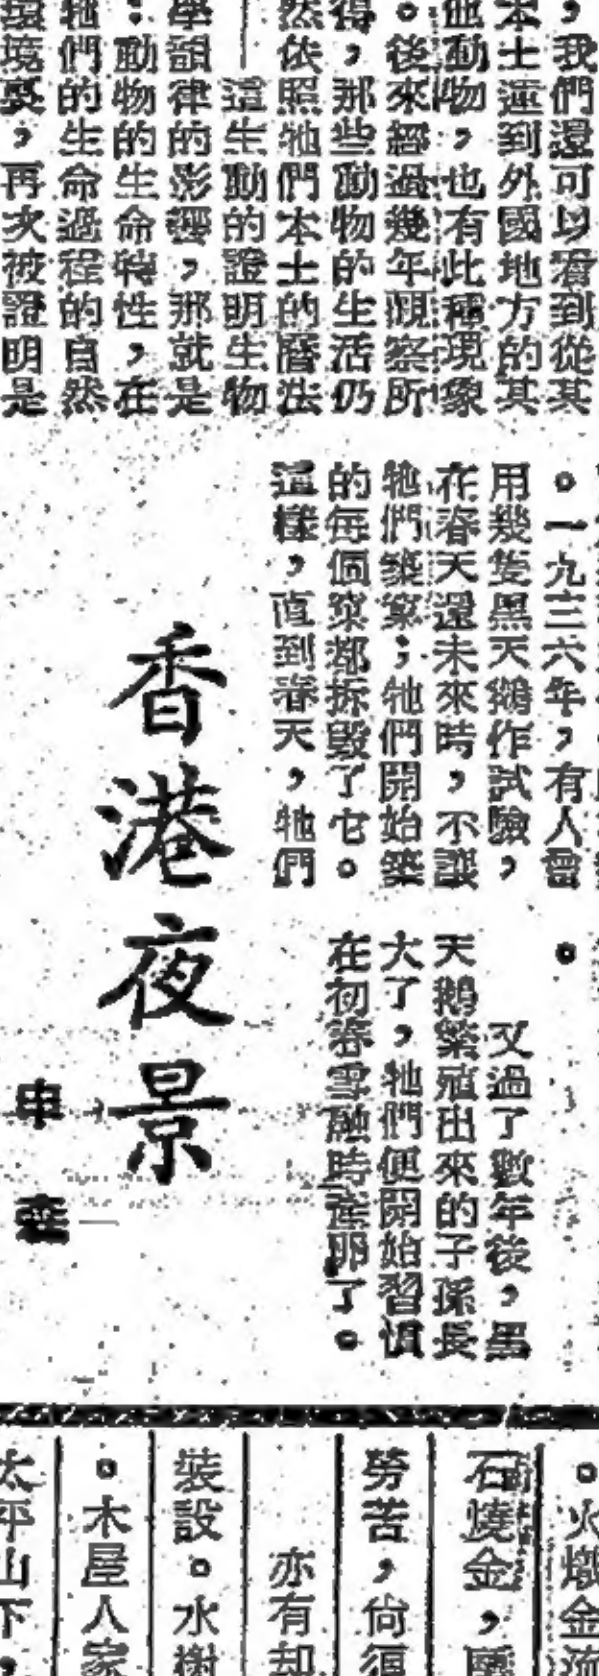 ，我們還可以看到從其
本土運到外國地方的其
他動物，也有此種現象
。後來經過幾年觀察所
得，那些動物的生活仍
然依照牠們本土的曆法
｜這生動的證明生物
學韻律的影響，那就是
：動物的生命特性，在
牠們的生命過程的自然
環境裏，再次被證明是
。一九三六年，有人曾
用幾隻黑天鵝作試驗，
在春天還未來時，不讓
牠們築窠；牠們開始築
的每個窠都拆毀了它。
這樣，直到春天，牠們
。
又過了數年後，黑
天鵝繁殖出來的子孫長
大了，牠們便開始習慣
在初春雪融時產卵了。
香港夜景
申
。火熾金流
石燒金，
勞苦，尙須
亦有却
裝設。水榭
。木屋人家
太平山下，